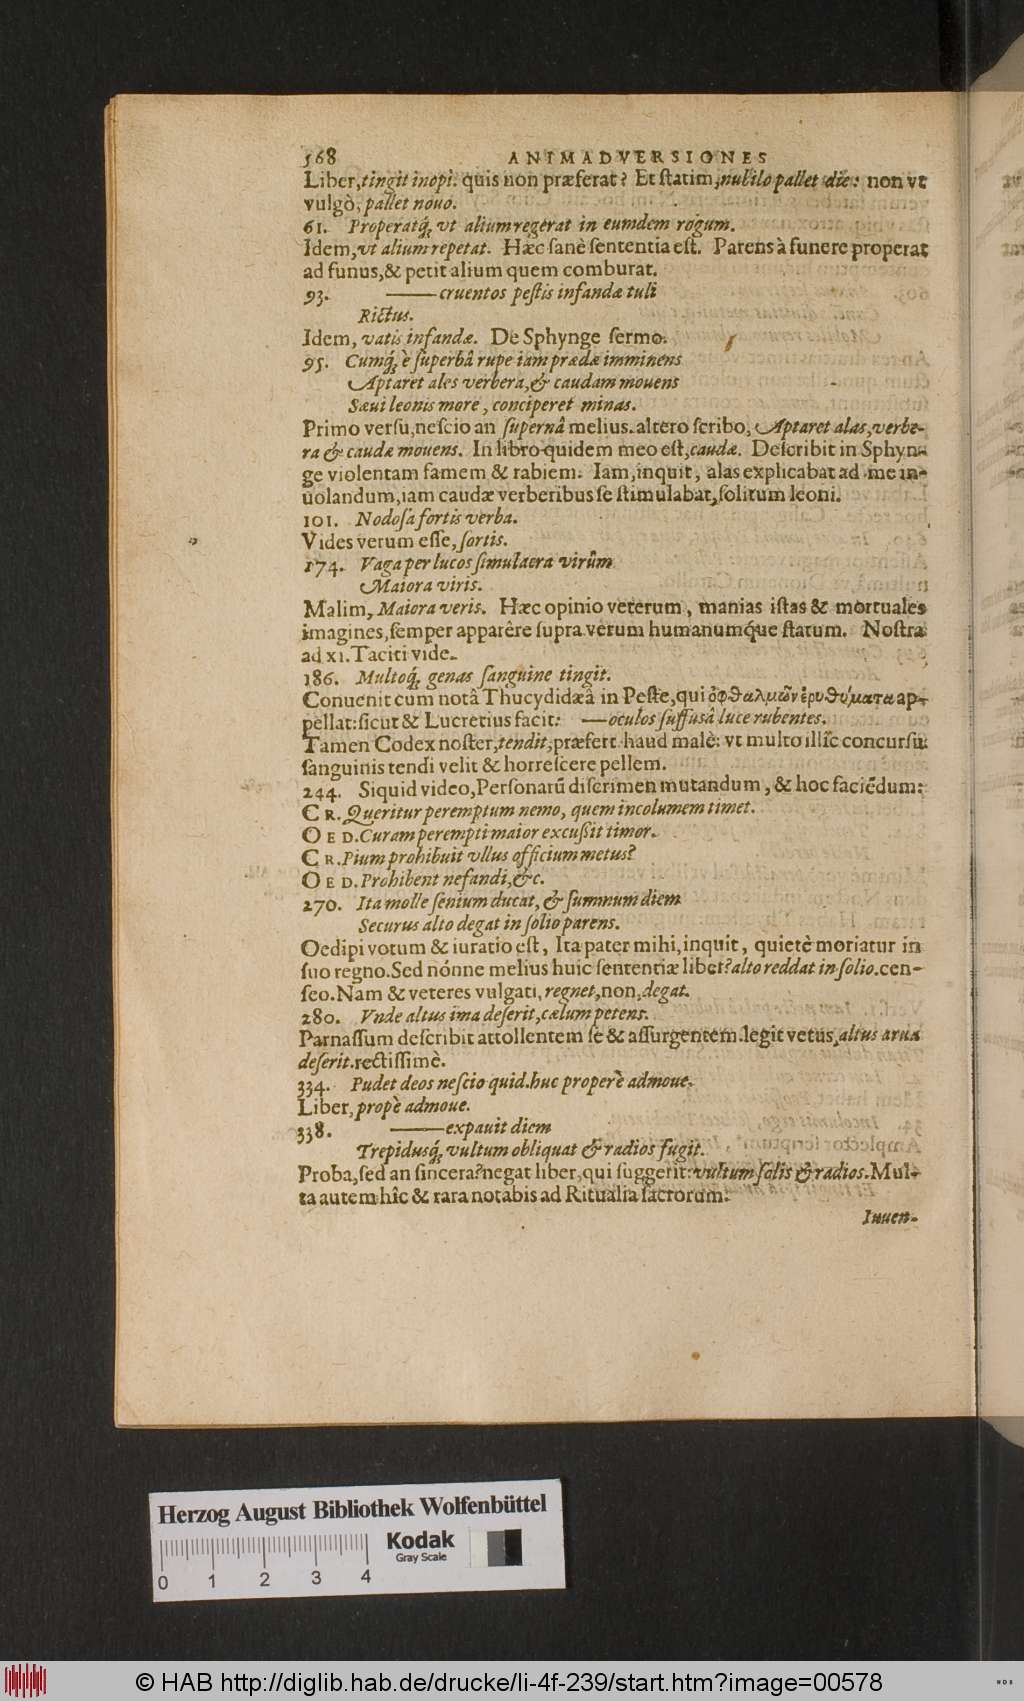 568 ANIMADVERSIONES
Liber, tingit inopi. quis non præferat? Et statim, nubilo pallet die: non vt
vulgò, pallet nouo.
61. Properatq́; vt alium regerat in eumdem rogum.
Idem, vt alium repetat. Hæc sanè sententia est. Parens à funere properat
ad funus, & petit alium quem comburat.
93. —— cruentos pestis infandæ tuli
Rictus.
Idem, vatis infandæ. De Sphynge sermo.
95. Cumq́; è superbâ rupe iam prædæ imminens
Aptaret ales verbera, & caudam mouens
Sæui leonis more, conciperet minas.
Primo versu, nescio an supernâ melius. altero scribo, Aptaret alas, verbe-
ra & caudæ mouens. In libro quidem meo est, caudæ. Describit in Sphyn-
ge violentam famem & rabiem. Iam, inquit, alas explicabat ad me in-
uolandum, iam caudæ verberibus se stimulabat, solitum leoni.
101. Nodosa fortis verba.
Vides verum esse, sortis.
174. Vaga per lucos simulacra virûm
Maiora viris.
Malim, Maiora veris. Hæc opinio veterum, manias istas & mortuales
imagines, semper apparêre supra verum humanumq́ue statum. Nostra
ad XI. Taciti vide.
186. Multoq́; genas sanguine tingit.
Conuenit cum notâ Thucydidæâ in Peste, qui ὀφθαλμῶν ἐρυθήματα ap-
pellat: sicut & Lucretius facit: —— oculos suffusâ luce rubentes.
Tamen Codex noster, tendit, præfert haud malè: vt multo illîc concursu
sanguinis tendi velit & horrescere pellem.
244. Siquid video, Personarũ discrimen mutandum, & hoc faciẽdum:
CR. Queritur peremptum nemo, quem incolumem timet.
OED. Curam perempti maior excußit timor.
CR. Pium prohibuit vllus officium metus?
OED. Prohibent nefandi, &c.
270. Ita molle senium ducat, & summum diem
Securus alto degat in solio parens.
Oedipi votum & iuratio est, Ita pater mihi, inquit, quietè moriatur in
suo regno. Sed nónne melius huic sententiæ libet? alto reddat in solio. cen-
seo. Nam & veteres vulgati, regnet, non, degat.
280. Vnde altus ima deserit, cælum petens.
Parnassum describit attollentem se & assurgentem. legit vetus, altus arua
deserit. rectissimè.
334. Pudet deos nescio quid. huc properè admoue.
Liber, propè admoue.
338. —— expauit diem
Trepidusq́; vultum obliquat & radios fugit.
Proba, sed an sincera? negat liber, qui suggerit: vultum solis & radios. Mul-
ta autem hîc & rara notabis ad Ritualia sacrorum:
Inuen-
Herzog August Bibliothek Wolfenbüttel
Kodak
Gray Scale
0 1 2 3 4
© HAB http://diglib.hab.de/drucke/li-4f-239/start.htm?image=00578